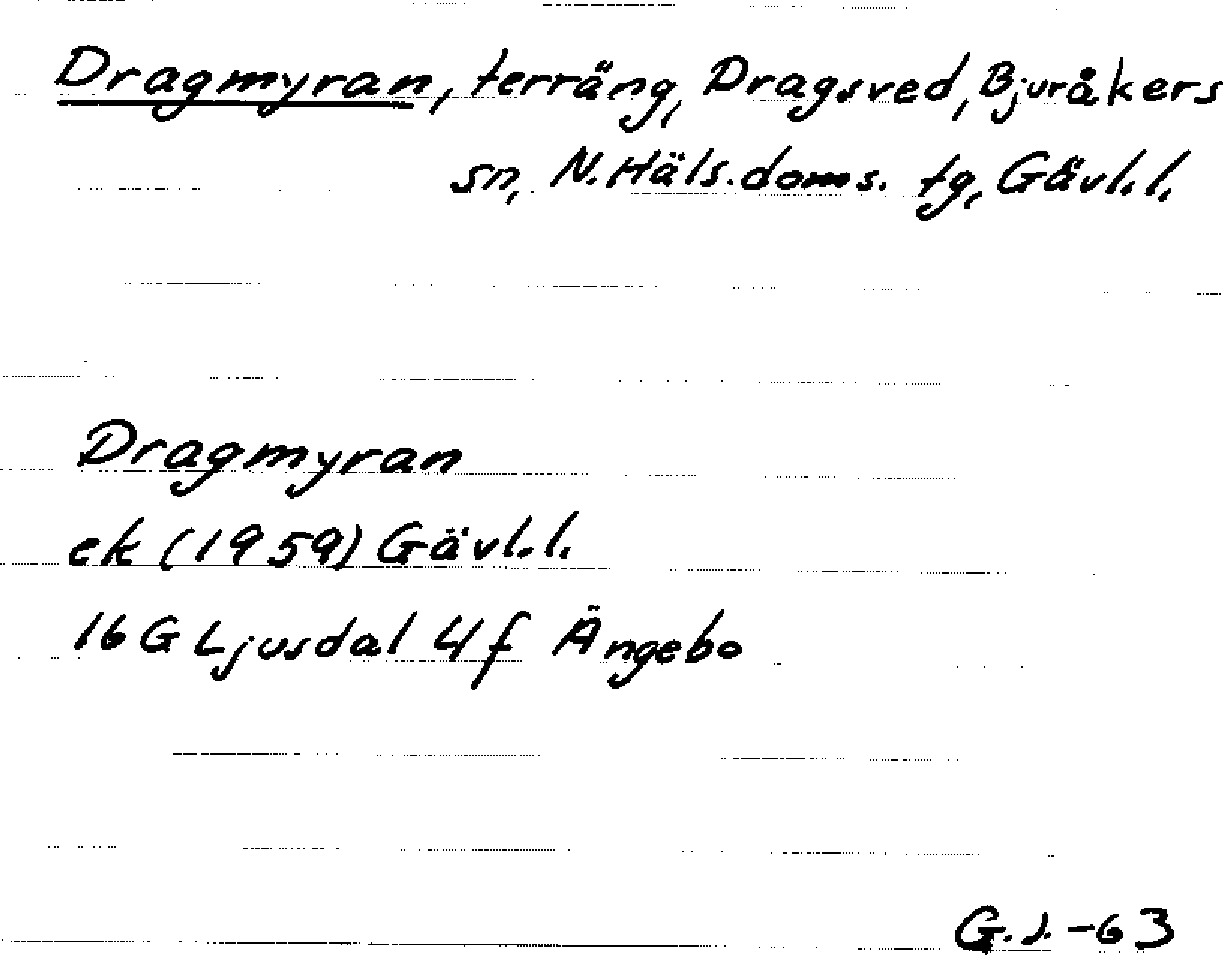 Dragmyran, terräng, Dragsved, Bjuråkers
sn, N. Häls. doms. tg, Gävl. l.
Dragmyran
ek (1959) Gävl. l.
16 G Ljusdal 4 f Ängebo
G. J. -63